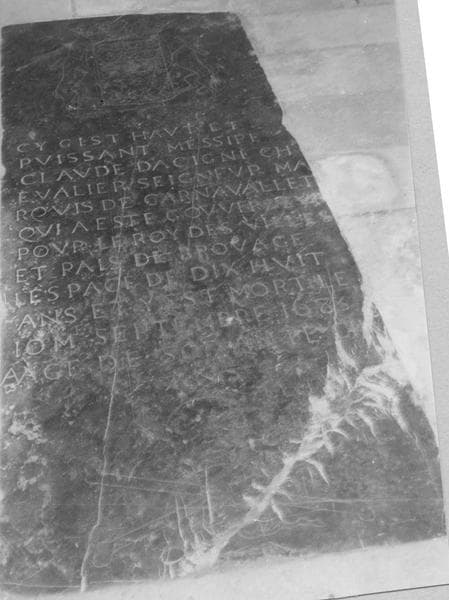 CY GIST HAVLT ET
PVISSANT MESSIRE
CLAVDE DACIGNE CHE
EVALIER SEIGNEVR MA
ROVIS DE CARNAVALLET
QVI A ESTE GOVVERN
POVR LE ROY DES VILLE
ET PAIS DE BROVAGE
LLES PAGE DE DIX HVIT
ANS ET Y EST MORT LE
IOM SEPTEMBRE
AAGE DE